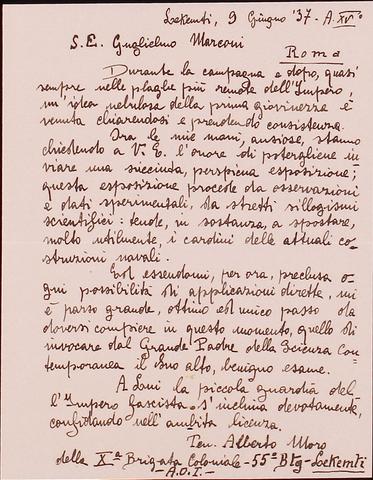 Lekemti, 9 Giugno '37 - A. XV°
S. E. Guglielmo Marconi
Roma
Durante la campagna e dopo, quasi
sempre nelle plaghe più remote dell'Impero,
un'idea nebulosa della prima giovinezza è
venuta chiarendosi e prendendo consistenza.
Ora le mie mani, ansiose, stanno
chiedendo a V. E. l'onore di potergliene in
viare una succinta, perspicua esposizione;
questa esposizione procede da osservazioni
e dati sperimentali, da stretti sillogismi
scientifici: tende, in sostanza, a spostare,
molto utilmente, i cardini delle attuali co-
struzioni navali.
Ed essendomi, per ora, preclusa o-
gni possibilità di applicazioni dirette, mi
è parso grande, ottimo ed unico passo da
doversi compiere in questo momento, quello di
invocare dal Grande Padre della Scienza Con
temporanea il Suo alto, benigno esame.
A Loni la piccola guardia del-
l'Impero fascista s'inclina devotamente,
confidando nell'ambita licenza.
Ten. Alberto Moro
della Xª Brigata Coloniale - 55° Btg - Lekemti
- A.O.I. -